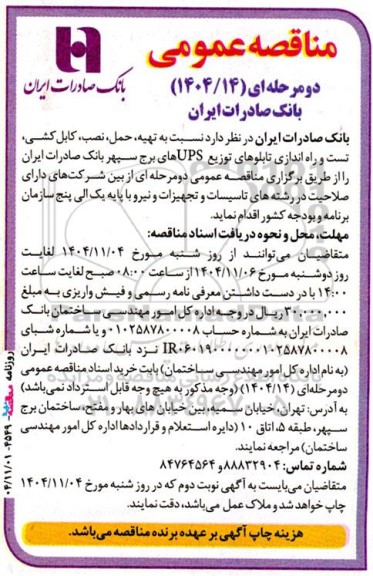 مناقصه عمومی
دو مرحله ای (۱۴۰۴/۱۴)
بانک صادرات ایران
بانک صادرات ایران
بانک صادرات ایران در نظر دارد نسبت به تهیه، حمل، نصب، کابل کشی،
تست و راه اندازی تابلوهای توزیع UPSهای برج سپهر بانک صادرات ایران
را از طریق برگزاری مناقصه عمومی دو مرحله ای از بین شرکت‌های دارای
صلاحیت در رشته های تاسیسات و تجهیزات و نیرو با پایه یک الی پنج سازمان
برنامه و بودجه کشور اقدام نماید.
مهلت، محل و نحوه دریافت اسناد مناقصه:
متقاضیان می‌توانند از روز شنبه مورخ ۱۴۰۴/۱۱/۰۴ لغایت
روز دوشنبه مورخ ۱۴۰۴/۱۱/۰۶ از ساعت ۰۸:۰۰ صبح لغایت ساعت
۱۴:۰۰ با در دست داشتن معرفی نامه رسمی و فیش واریزی به مبلغ
۳۰,۰۰۰,۰۰۰ ریال در وجه اداره کل امور مهندسی ساختمان بانک
صادرات ایران به شماره حساب ۰۱۰۲۵۸۷۸۰۰۰۰۸ و یا شماره شبای
نزد بانک صادرات ایران
(به نام اداره کل امور مهندسی ساختمان) بابت خرید اسناد مناقصه عمومی
دو مرحله‌ای (۱۴۰۴/۱۴) (وجه مذکور به هیچ وجه قابل استرداد نمی‌باشد)
به آدرس: تهران، خیابان سمیه، بین خیابان های بهار و مفتح، ساختمان برج
سپهر، طبقه ۵، اتاق ۱۰ (دایره استعلام و قراردادها اداره کل امور مهندسی
ساختمان) مراجعه نمایند.
شماره تماس: ۸۸۸۳۲۹۰۴ و ۸۴۷۶۴۵۶۴
متقاضیان می‌بایست به آگهی نوبت دوم که در روز شنبه مورخ ۱۴۰۴/۱۱/۰۴
چاپ خواهد شد و ملاک عمل می‌باشد، دقت نمایند.
هزینه چاپ آگهی بر عهده برنده مناقصه می‌باشد.
روزنامه
۰۴/۱۱/۰۱-۴۵۴۹